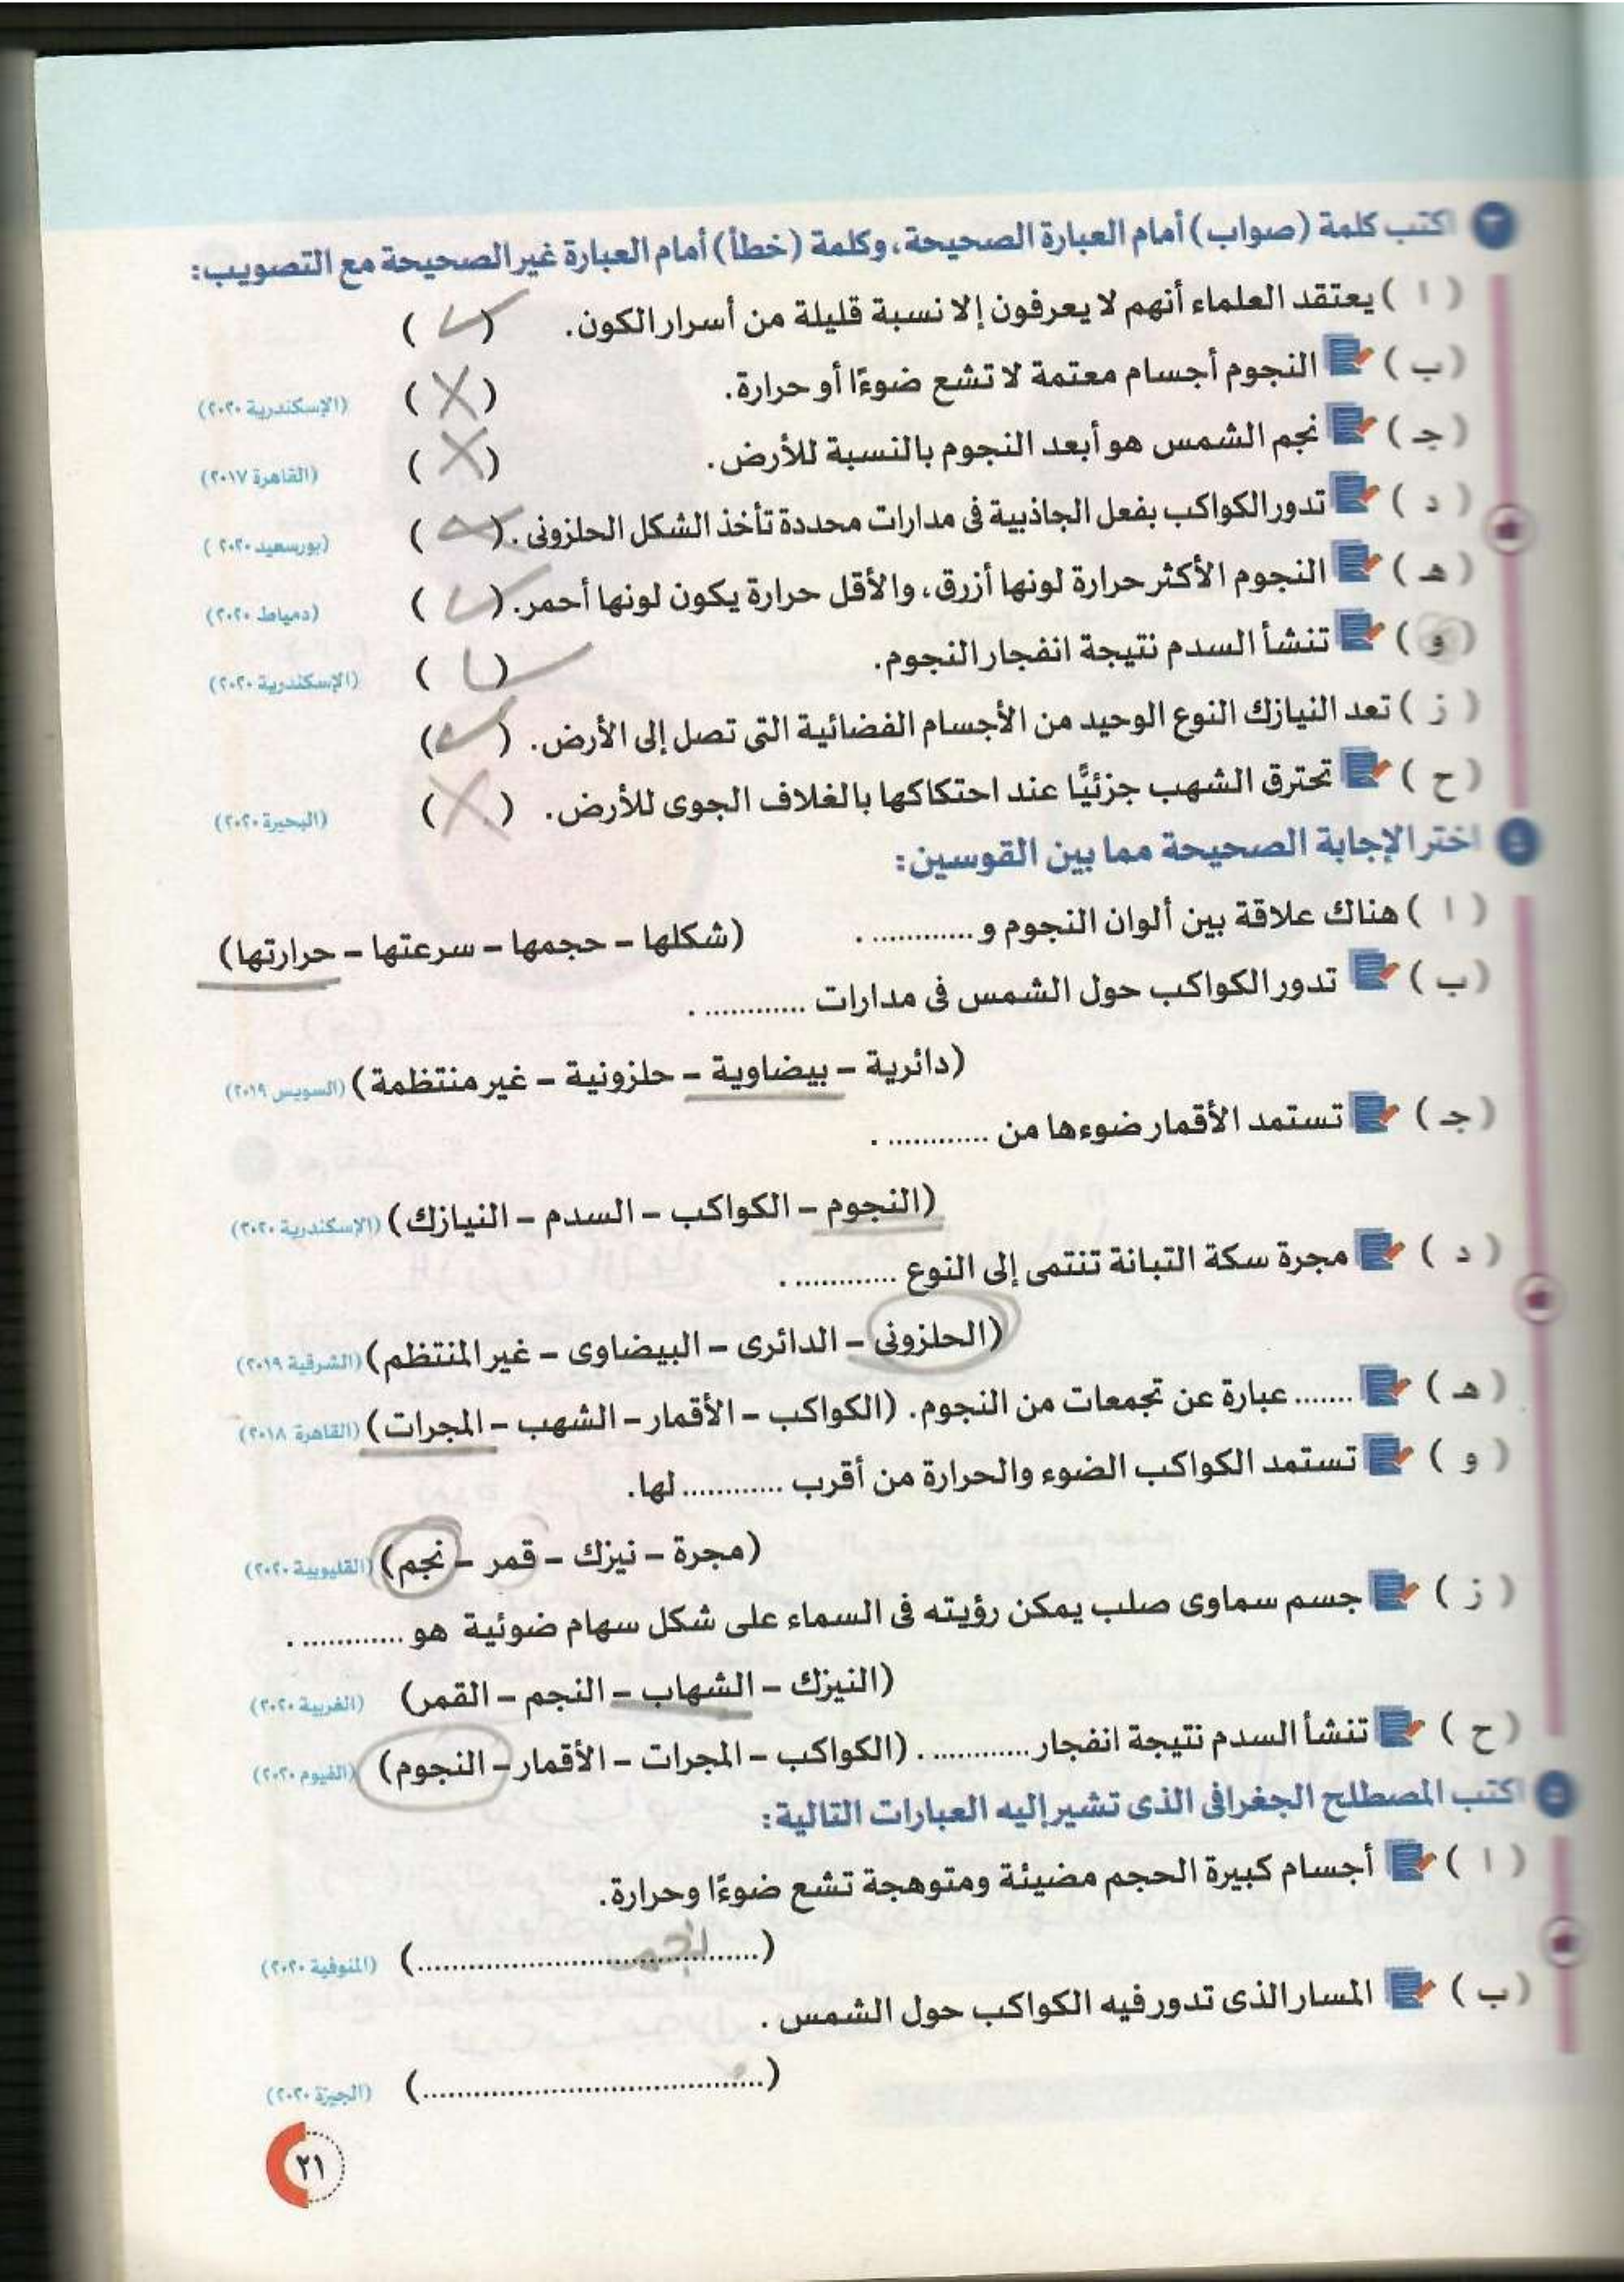 ٣ اكتب كلمة (صواب) أمام العبارة الصحيحة، وكلمة (خطأ) أمام العبارة غير الصحيحة مع التصويب:
( ا ) يعتقد العلماء أنهم لا يعرفون إلا نسبة قليلة من أسرار الكون. ( ✓ )
( ب ) النجوم أجسام معتمة لا تشع ضوءًا أو حرارة. ( X ) (الإسكندرية ٢٠٢٠)
( جـ ) نجم الشمس هو أبعد النجوم بالنسبة للأرض. ( X ) (القاهرة ٢٠١٧)
( د ) تدور الكواكب بفعل الجاذبية فى مدارات محددة تأخذ الشكل الحلزونى. ( ) (بورسعيد ٢٠٢٠ )
( هـ ) النجوم الأكثر حرارة لونها أزرق، والأقل حرارة يكون لونها أحمر. ( ✓ ) (دمياط ٢٠٢٠)
( و ) تنشأ السدم نتيجة انفجار النجوم. ( ✓ ) (الإسكندرية ٢٠٢٠)
( ز ) تعد النيازك النوع الوحيد من الأجسام الفضائية التى تصل إلى الأرض. ( ✓ )
( ح ) تحترق الشهب جزئيًّا عند احتكاكها بالغلاف الجوى للأرض. ( X ) (البحيرة ٢٠٢٠)
اختر الإجابة الصحيحة مما بين القوسين:
( ا ) هناك علاقة بين ألوان النجوم و ............ . (شكلها – حجمها – سرعتها – حرارتها)
( ب ) تدور الكواكب حول الشمس فى مدارات ............ .
(دائرية – بيضاوية – حلزونية – غير منتظمة) (السويس ٢٠١٩)
( جـ ) تستمد الأقمار ضوءها من ............ .
(النجوم – الكواكب – السدم – النيازك) (الإسكندرية ٢٠٢٠)
( د ) مجرة سكة التبانة تنتمى إلى النوع ............ .
(الحلزونى – الدائرى – البيضاوى – غير المنتظم) (الشرقية ٢٠١٩)
( هـ ) ....... عبارة عن تجمعات من النجوم. (الكواكب – الأقمار – الشهب – المجرات) (القاهرة ٢٠١٨)
( و ) تستمد الكواكب الضوء والحرارة من أقرب ............ لها.
(مجرة – نيزك – قمر – نجم) (القليوبية ٢٠٢٠)
( ز ) جسم سماوى صلب يمكن رؤيته فى السماء على شكل سهام ضوئية هو ............ .
(النيزك – الشهاب – النجم – القمر) (الغربية ٢٠٢٠)
( ح ) تنشأ السدم نتيجة انفجار ............ . (الكواكب – المجرات – الأقمار – النجوم) (الفيوم ٢٠٢٠)
اكتب المصطلح الجغرافى الذى تشير إليه العبارات التالية:
( ا ) أجسام كبيرة الحجم مضيئة ومتوهجة تشع ضوءًا وحرارة.
(............................) (المنوفية ٢٠٢٠)
( ب ) المسار الذى تدور فيه الكواكب حول الشمس .
(............................) (الجيزة ٢٠٢٠)
٢١